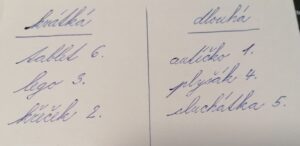 krátká
tablet 6.
lego 3.
křeček 2.
dlouhá
autíčko 1.
plyšák 4.
sluchátka 5.